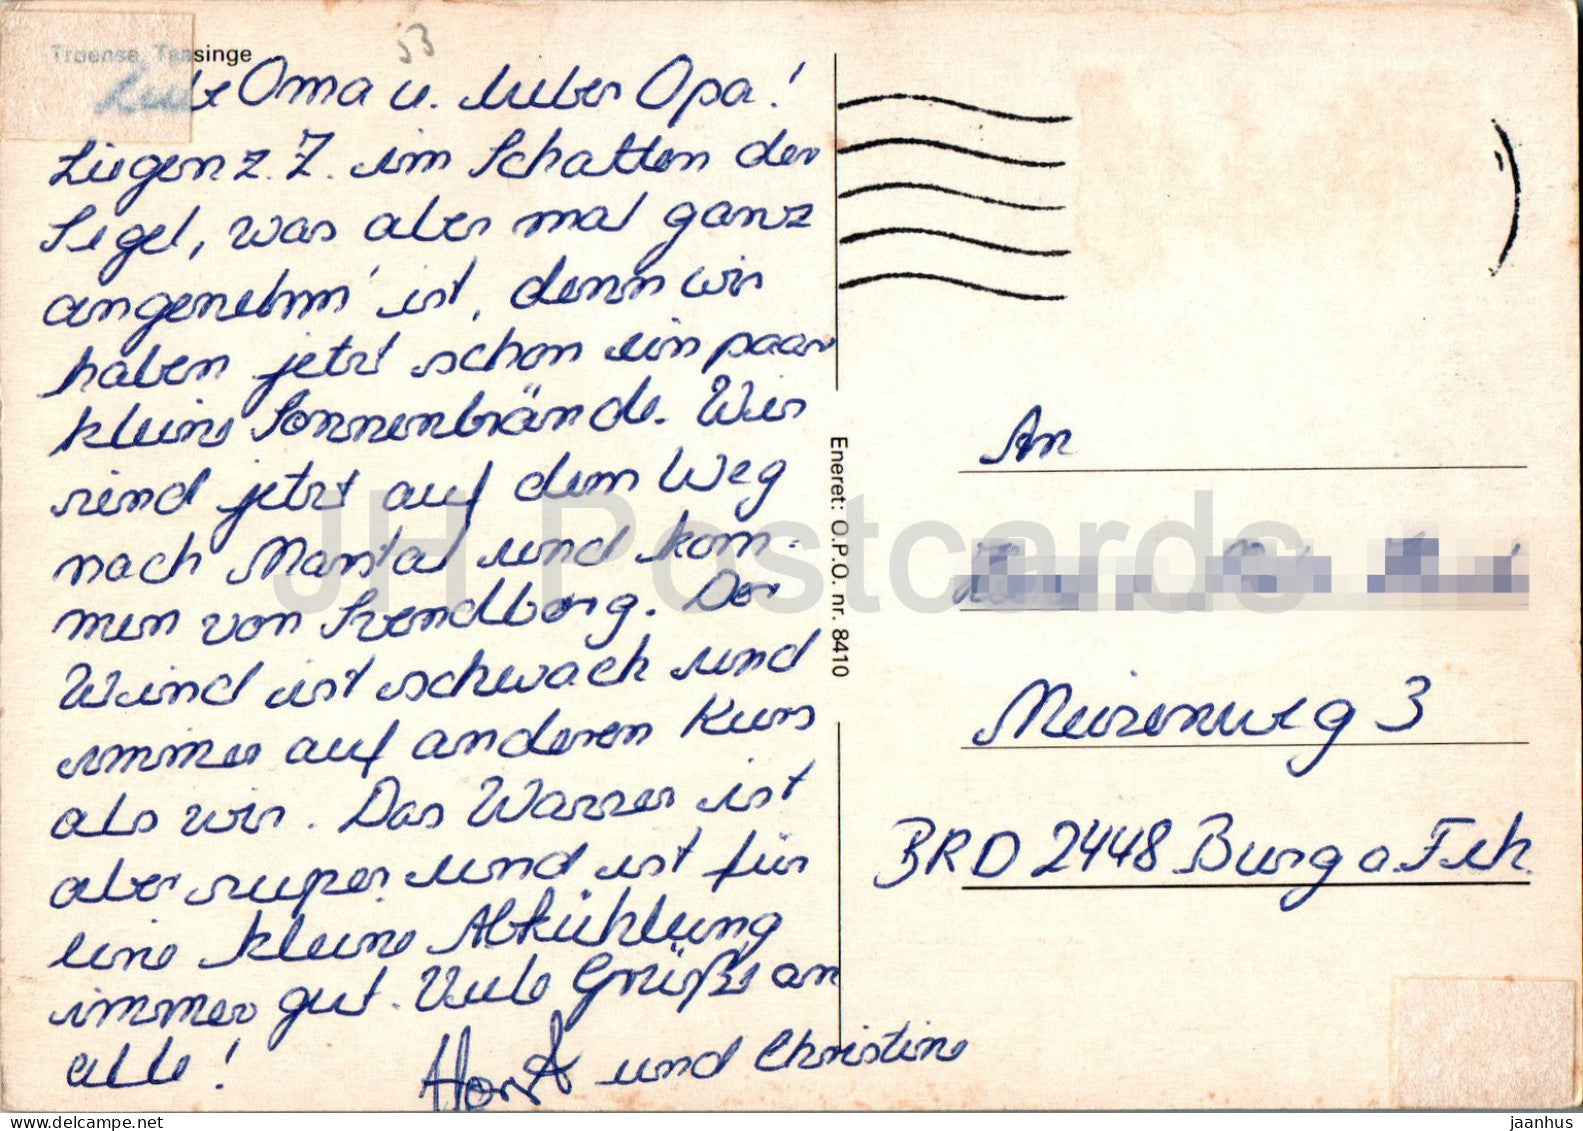 Troense, Taasinge
53
Liebe Oma u. lieber Opa!
Liegen z. Z. im Schatten der
Segel, was aber mal ganz
angenehm ist, denn wir
haben jetzt schon ein paar
kleine Sonnenbrände. Wir
sind jetzt auf dem Weg
nach Marstal und kom-
men von Svendborg. Der
Wind ist schwach und
immer auf anderen Kurs
als wir. Das Wasser ist
aber super und ist für
eine kleine Abkühlung
immer gut. Viele Grüße an
alle!
Horst und Christine
Eneret: O.P.O. nr. 8410
An
Meisenweg 3
BRD 2448 Burg a. Feh.
JH Postcards
delcampe.net
jaanhus